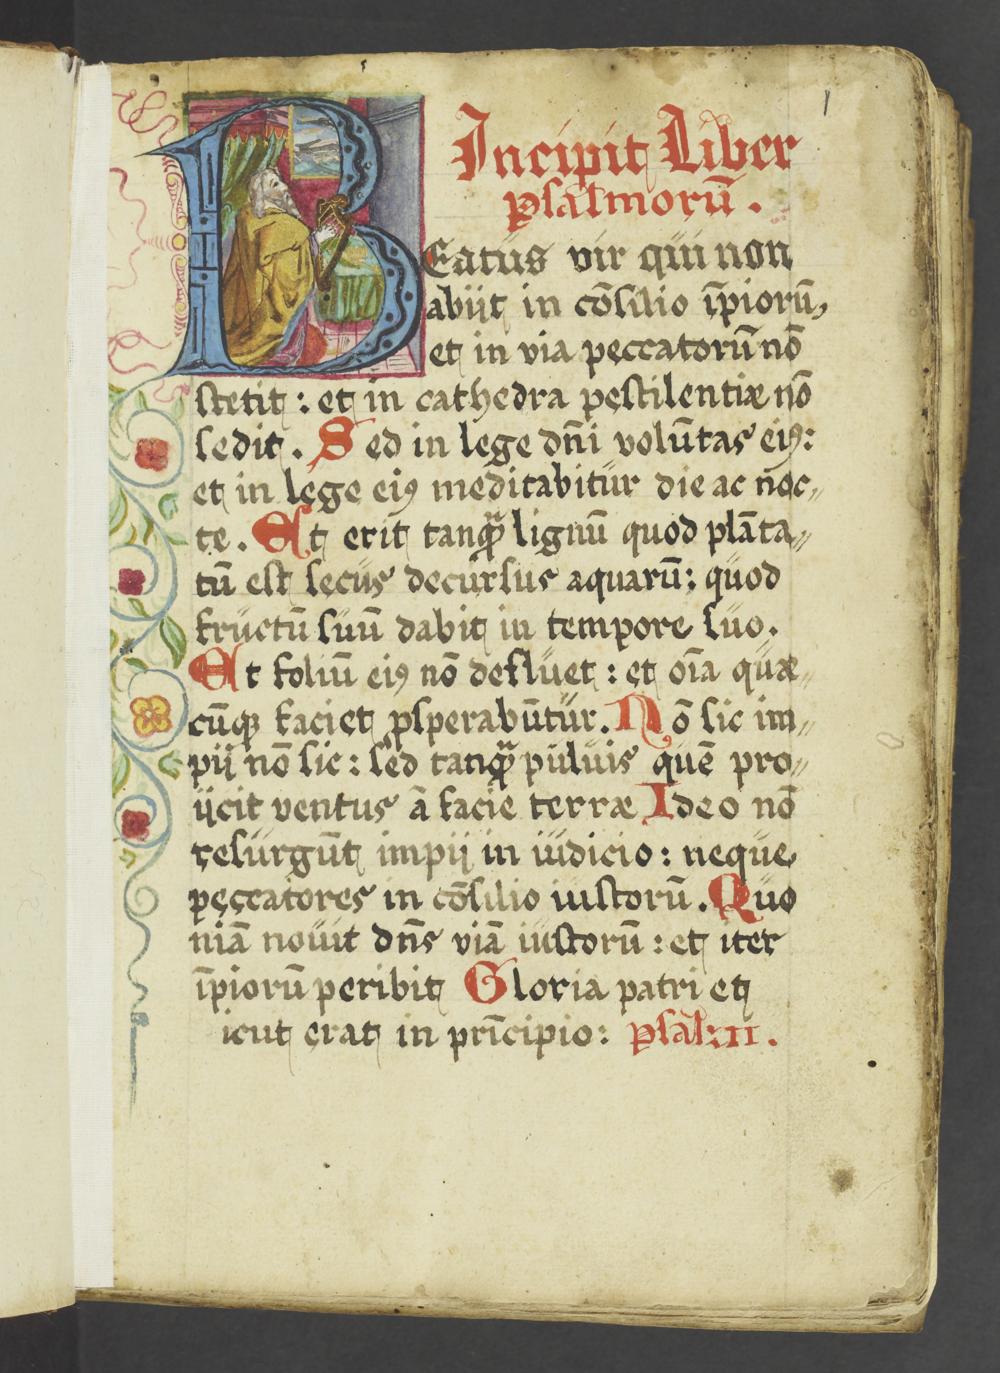 1
Incipit Liber
psalmorū.
BEatus vir qui non
abijt in cōsilio īpiorū,
et in via peccatorū nō
stetit : et in cathedra pestilentiæ nō
sedit. Sed in lege dn̄i volūtas eiꝰ:
et in lege eiꝰ meditabitur die ac noc〃
te. Et erit tanqͣ lignū quod plāta〃
tū est secus decursus aquarū: quod
fructū suū dabit in tempore suo.
Et foliū eiꝰ nō defluet : et oīa quæ〃
cūqꝫ faciet ꝓsperabūtur. Nō sic im〃
pij nō sic : sed tanqͣ puluis quē pro〃
ijcit ventus ā facie terræ Ideo nō
resurgūt impij in iudicio : neque
peccatores in cōsilio iustorū. Quo
niā nouit dn̄s viā iustorū : et iter
īpiorū peribit Gloria patri et
icut erat in prīncipio: psal: II.